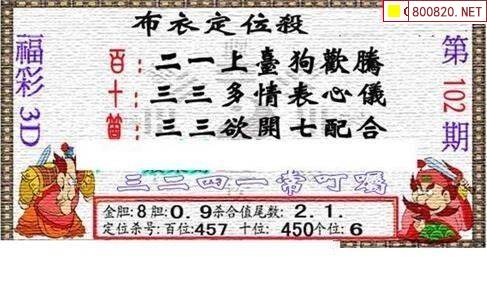 C800820.NET
布衣定位殺
福彩3D
第102期
百：二一上臺狗歡騰
十：三三多情表心儀
箇：三三欲開七配合
三二四一常叮嚀
金胆:8胆:0.9杀合值尾数:2.1.
定位杀号:百位:457 十位:450个位:6